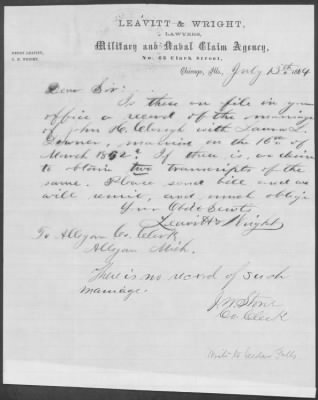 LEAVITT & WRIGHT,
LAWYERS,
Military and Naval Claim Agency,
No. 65 Clark Street,
HENRY LEAVITT,
Chicago, Ills., July 13th 1864
Dear Sir:
Is there on file in your
office a record of the marriage
of John H. with
married on the 10th of
March 1862? If there is, we desire
to obtain two transcripts of
the same. Please send bill and we
will remit, and much oblige
Your Obdt Servts
Leavitt & Wright
To Allegan Co. Clerk
Allegan Mich.
There is no record of such
marriage.
J. W. Stone
Co Clerk
Write to Cedar Falls